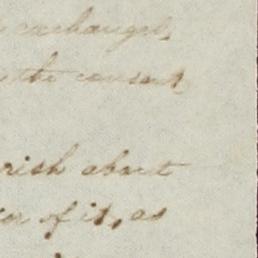 exchanged,
the consent
rish about
of it, as